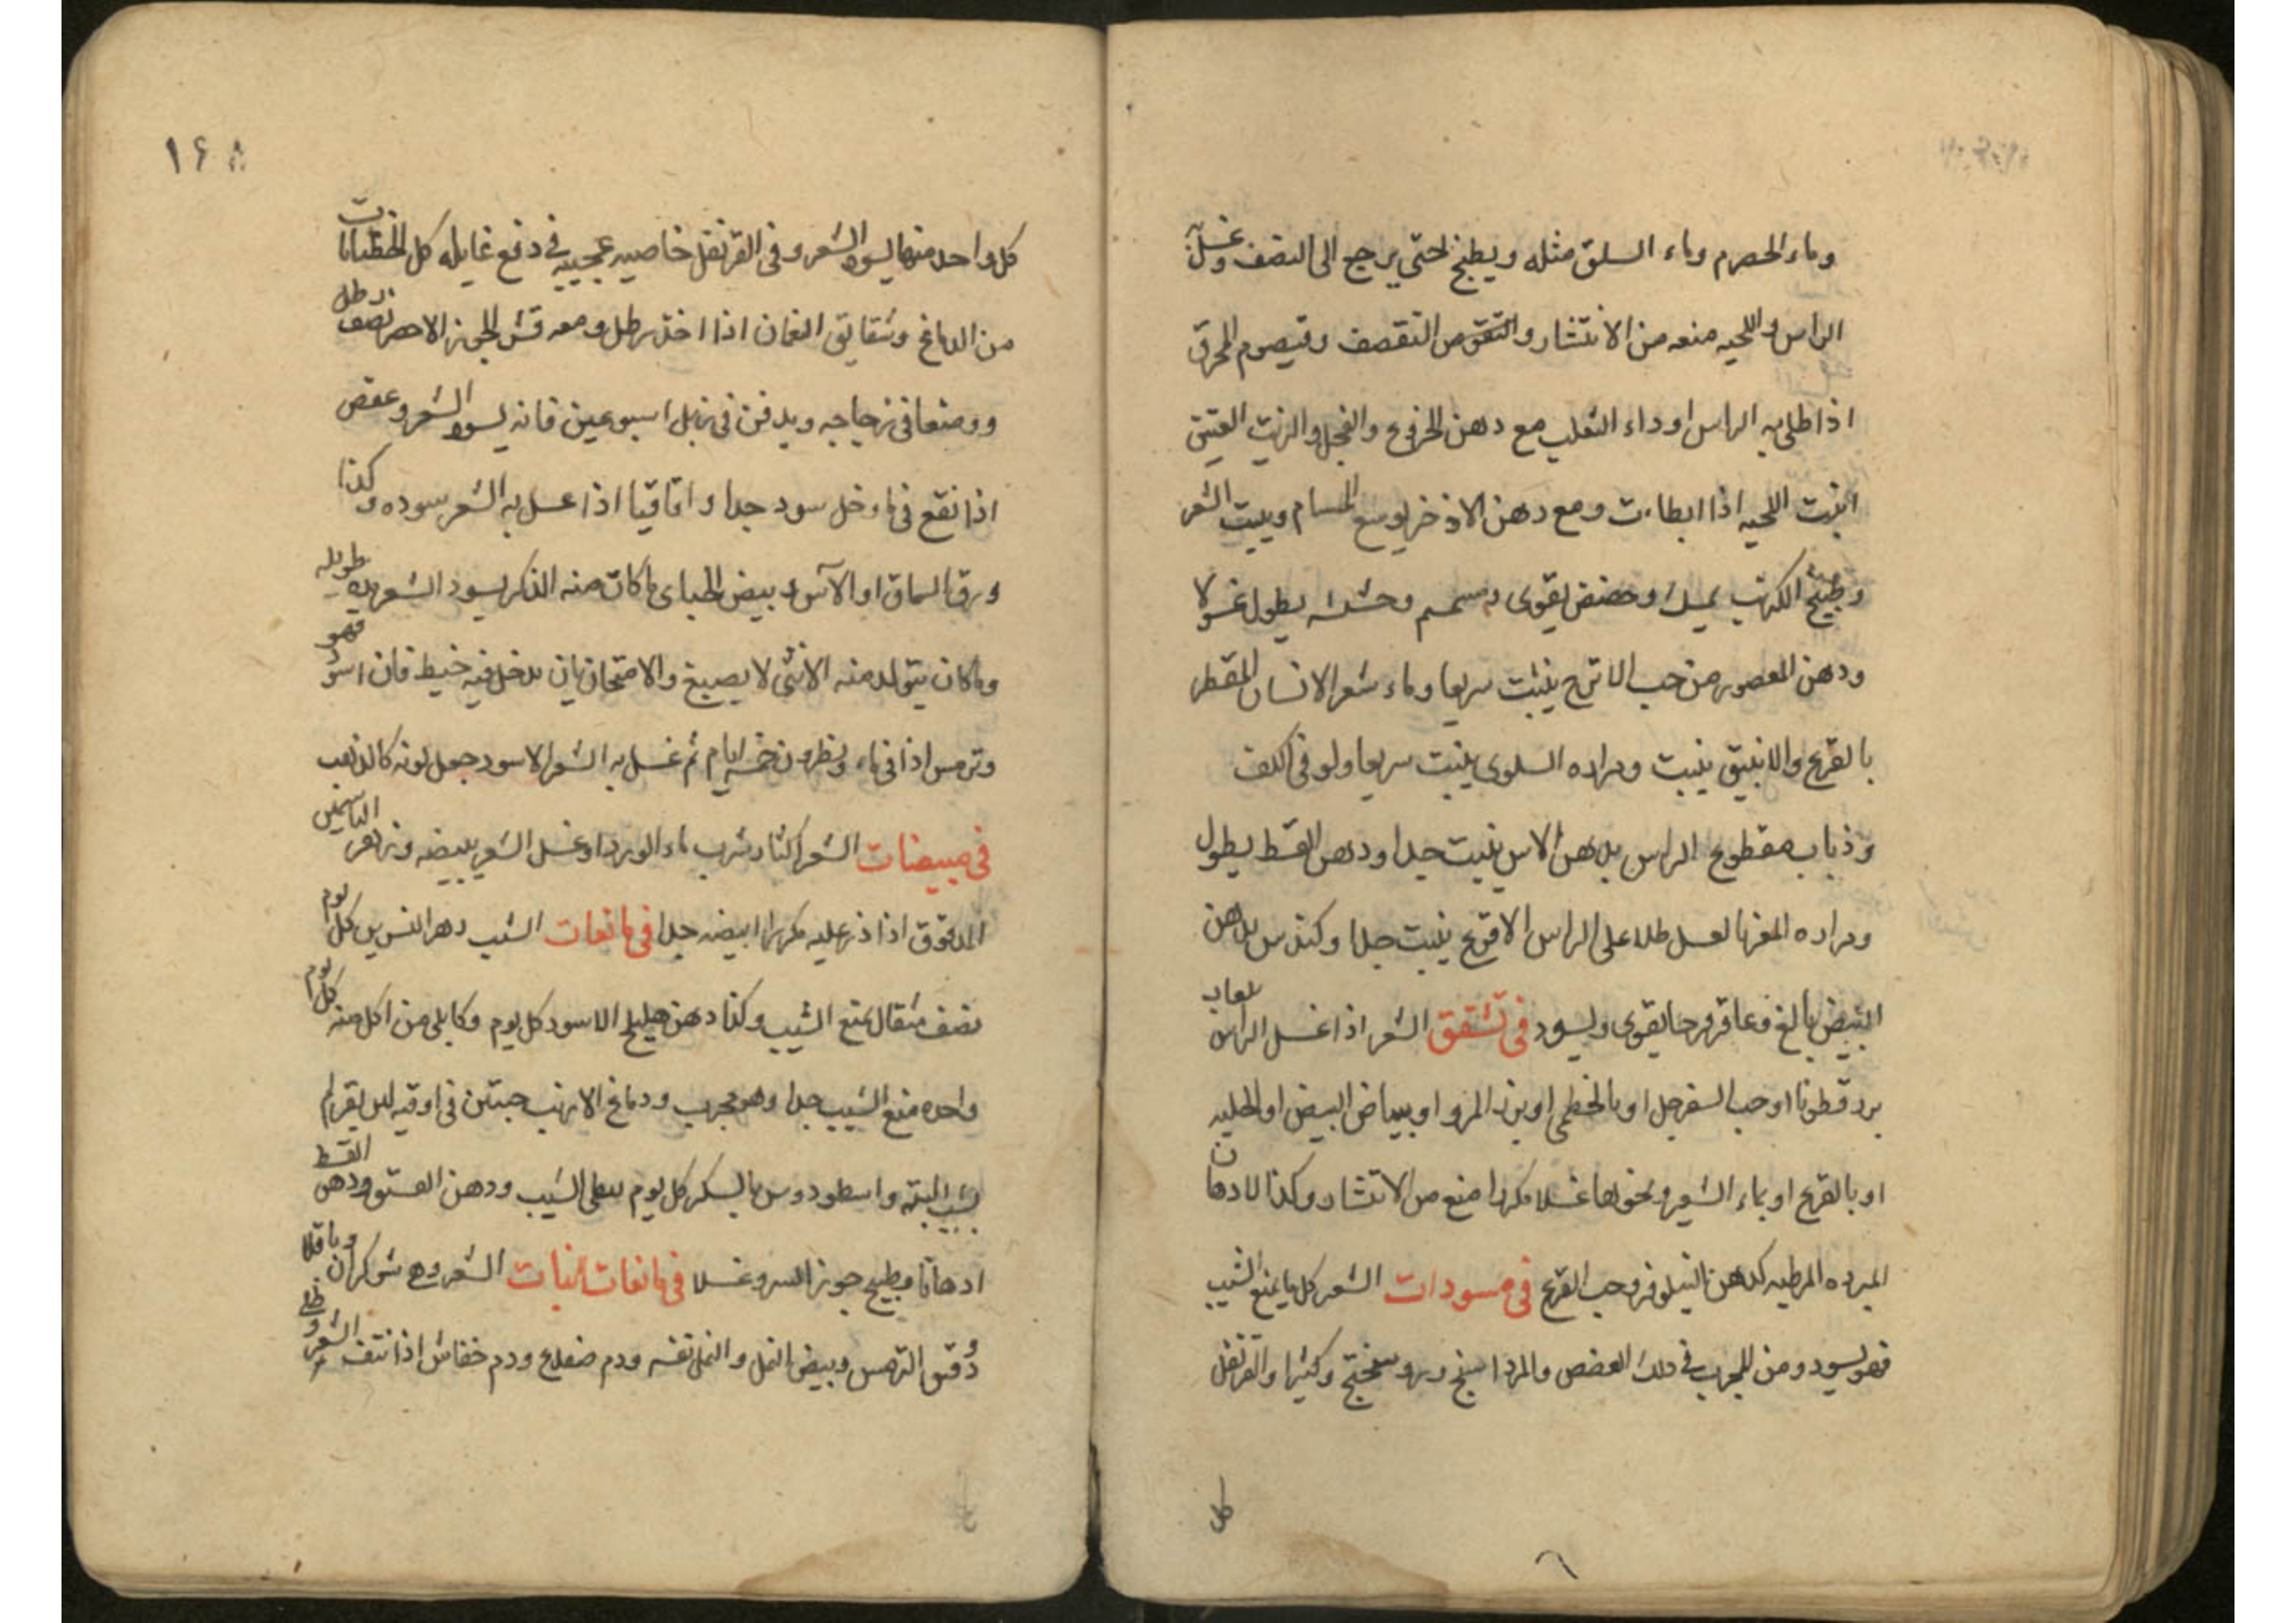 وماء الحصرم وماء السلق مثله ويطبخ حتى يرجع الى النصف وغسل به
الراس واللحيه منعه من الانتشار والتقوص التقصف وقيصوم المحرق
اذا طلي به الراس او داء الثعلب مع دهن الخروع والفجل والزيت العتيق
انبت اللحيه اذا ابطاءت ومع دهن الاذخر يوسع المسام وينبت الشعر
وطبيخ الكرنب يمسك وحضض يقوى وسمسم وحشيشه يطول غسولا
ودهن المعصور من حب الاترج ينبت سريعا وماء شعر الانسان المقطر
بالقرع والانبيق ينبت ومراده السلوى ينبت سريعا ولو فى الكف
وذباب مقطوع الراس بدهن الاس ينبت جدا ودهن القسط يطول
ومراده المغز بالعسل طلا على الراس الاقرع ينبت جدا وكندس بدهن
البيض بالغ وعاقرقرحا يقوى ويسود فى تشقق الشعر اذا غسل الراس بلعاب
بزر قطونا او حب السفرجل او بالخطمى او بزر المرو او ببياض البيض او الحلبه
او بالقرع او بماء الشعير ونحوها غسلا مكررا منع من الانتشار وكذا الادهان
المبرده المرطبه كدهن النيلوفر وحب القرع فى مسودات الشعر كل ما يمنع الشيب
فهو يسود ومن المجرب فى ذلك العفص والمرداسنج وروسختج وكثيرا والقرنفل
كل
١۶٨
كل واحد منها يسود الشعر وفى القرنفل خاصيه عجيبه فى دفع غايله كل الخضابات
من الدماغ وشقايق النعمان اذا اخذ رطل ومعه قشر الجوز الاخضر نصف رطل
ووضعا فى زجاجه ويدفن فى زبل اسبوعين فانه يسود الشعر وعفص
اذا نقع فى ماء وخل سود جدا واقاقيا اذا غسل به الشعر سوده وكذا
ورق السماق او الآس وبيض الحبارى ما كان منه الذكر يسود الشعر مده طويله
وما كان يتولد منه الانثى لا يصبغ والامتحان بان يدخل فيه خيط فان اسود فهو
وترمس اذا فى ماء ونطرون خمسه ايام ثم غسل به الشعر الاسود جعل لونه كالذهب
فى مبيضات الشعر اكثار شرب ماء الورد او غسل الشعر يبيضه وزهر الياسمين
المدقوق اذا ذر عليه مكررا ابيضه جدا فى مانعات الشيب دهر النسرين كل يوم
نصف مثقال يمنع الشيب وكذا دهن هليلج الاسود كل يوم وكابلى من اكل منه كل يوم
واحده منع الشيب جدا وهو مجرب ودماغ الارنب حبتين فى اوقيه لبن بقر لم
يشيب البته واسطوخودوس بالسكر كل يوم يبطى الشيب ودهن الفستق ودهن القسط
ادهانا وطبيخ جوز السرو غسلا فى مانعات انبات الشعر وهى شوكران وباقلا
ودقيق الترمس وبيض النمل والنمل نفسه ودم ضفدع ودم خفاش اذا نتف الشعر و